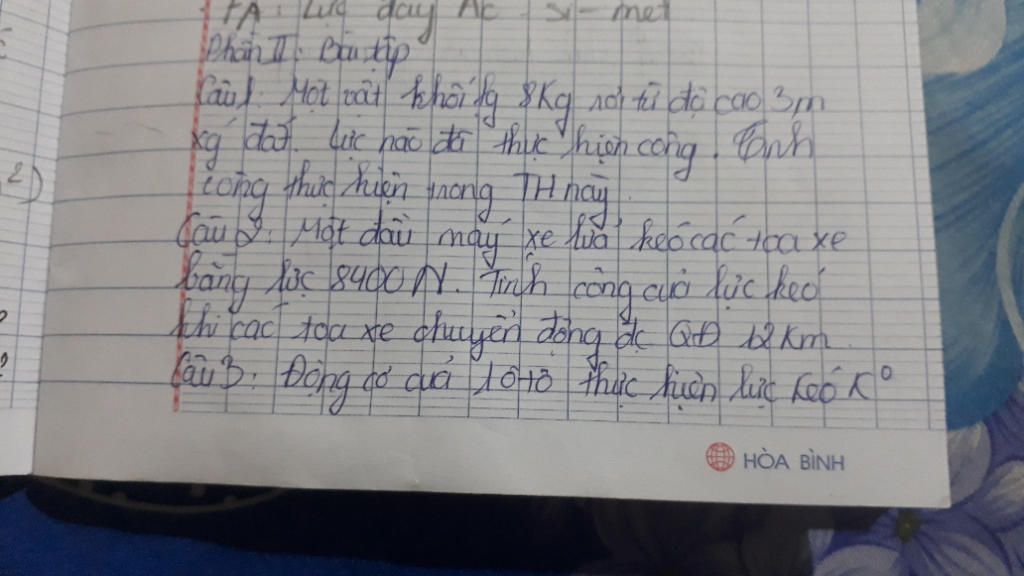 FA: Lực đẩy Ác - si - met
Phần II: Bài tập
Câu 1. Một vật khối lg 8Kg rơi từ độ cao 3m
xg' đất. Lực nào đã thực hiện công. Tính
công thực hiện trong TH này.
Câu 2: Một đầu máy xe lửa kéo các toa xe
bằng lực 8400N. Tính công của lực kéo
khi các toa xe chuyển động đc QĐ 12Km.
Câu 3: Động cơ của 1 ôtô thực hiện lực kéo K°
2)
HÒA BÌNH